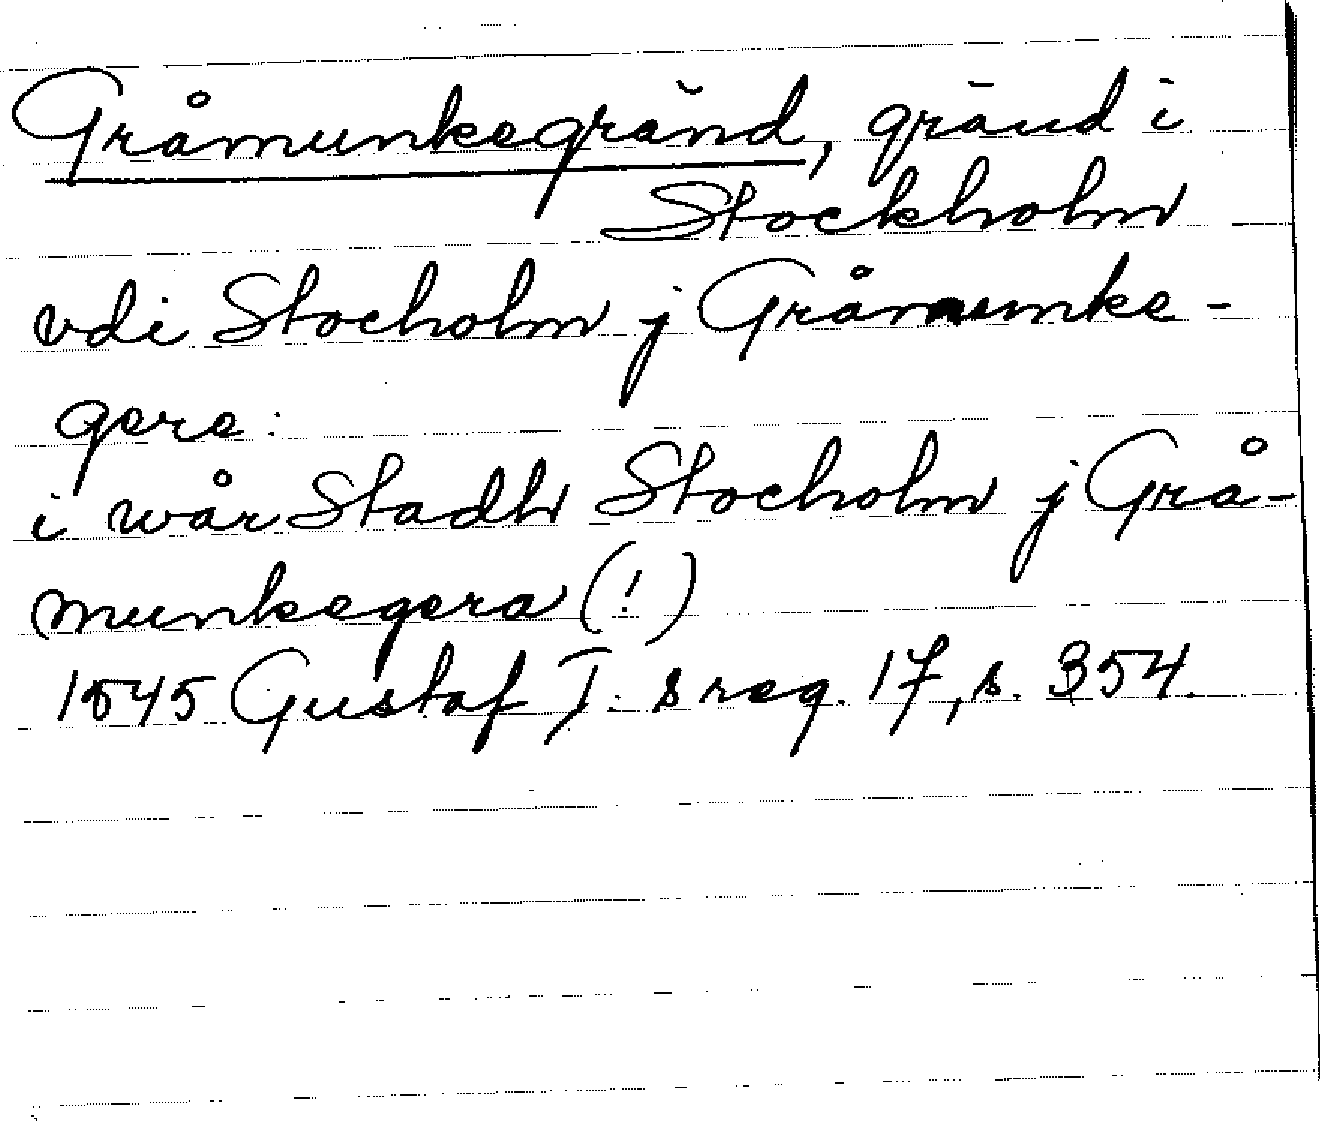 Gråmunkegränd, gränd i
Stockholm
vdi Stocholm j Gråmunke-
gere:
i wår Stadh Stocholm j Grå-
munkegera (!)
1545 Gustaf I:s reg. 17, s. 354.